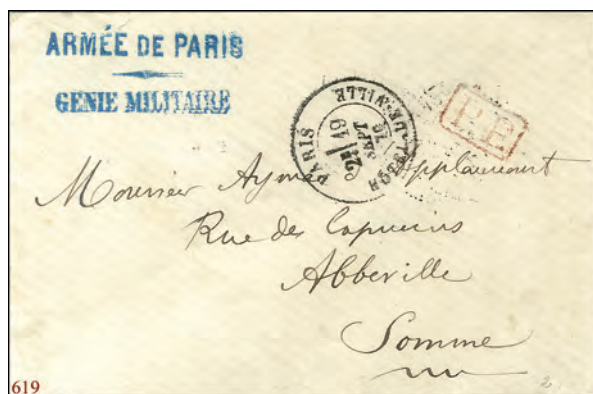 ARMÉE DE PARIS
GENIE MILITAIRE
PARIS
19
SEPT
70
P.P.
Monsieur Aymar
Rue des Capucins
Abbeville
Somme
619
2